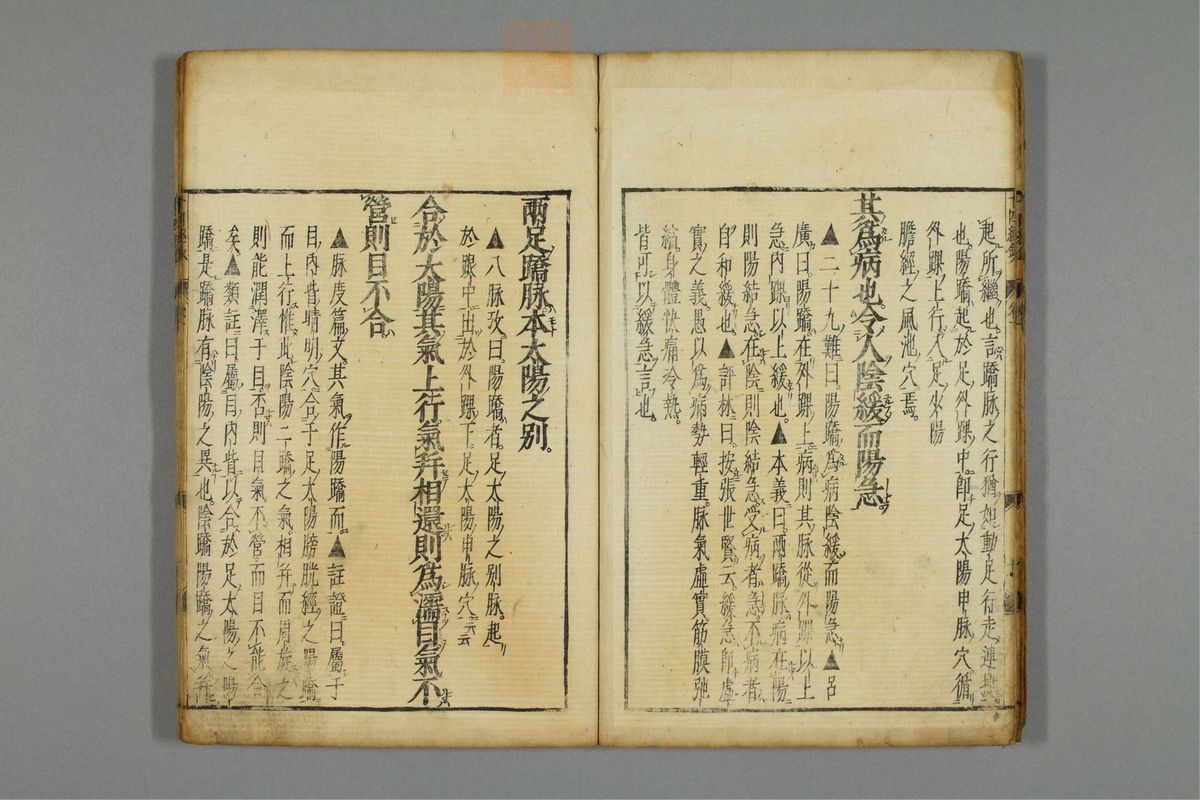 起所繼也言蹻脉之行猶如動足行走連
也陽蹻起於足外踝中即足太陽申脉穴循
外踝上行入足少陽
膽經之風池穴焉
其爲病也令人陰緩而陽急
▲二十九難曰陽蹻爲病陰緩而陽急▲呂
廣曰陽蹻在外踝上病則其脉從外踝以上
急内踝以上緩也▲本義曰兩蹻脉病在陽
則陽結急在陰則陰結急受病者急不病者
自和緩也▲評林曰按張世賢云緩急即虛
實之義愚以爲病勢輕重脉氣虛實筋膜弛
縮身體快痛冷熱
皆可以緩急言也
兩足蹻脉本太陽之別
▲八脉攷曰陽蹻者足太陽之別脉起
於踝中出於外踝下足太陽申脉穴云云
合於太陽其氣上行氣并相還則爲濡目氣不
營則目不合
▲脉度篇文其氣作陽蹻而▲註證曰屬于
目内眥睛明穴合于足太陽膀胱經之陽蹻
而上行惟此陰陽二蹻之氣相并而周旋之
則能潤澤于目否則目氣不營而目不能合
矣▲類註曰屬目内眥以合於足太陽之陽
蹻是蹻脉有陰陽之異也陰蹻陽蹻之氣并